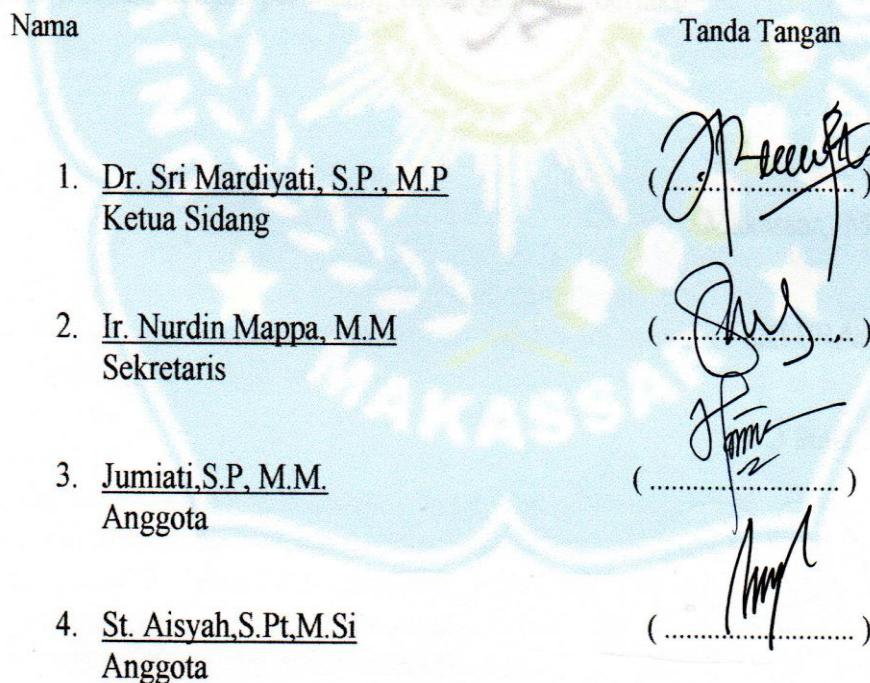 Nama Tanda Tangan
1. Dr. Sri Mardiyati, S.P., M.P (........................)
Ketua Sidang
2. Ir. Nurdin Mappa, M.M (........................)
Sekretaris
MAKASSAR
3. Jumiati,S.P, M.M. (........................)
Anggota
4. St. Aisyah,S.Pt,M.Si (........................)
Anggota